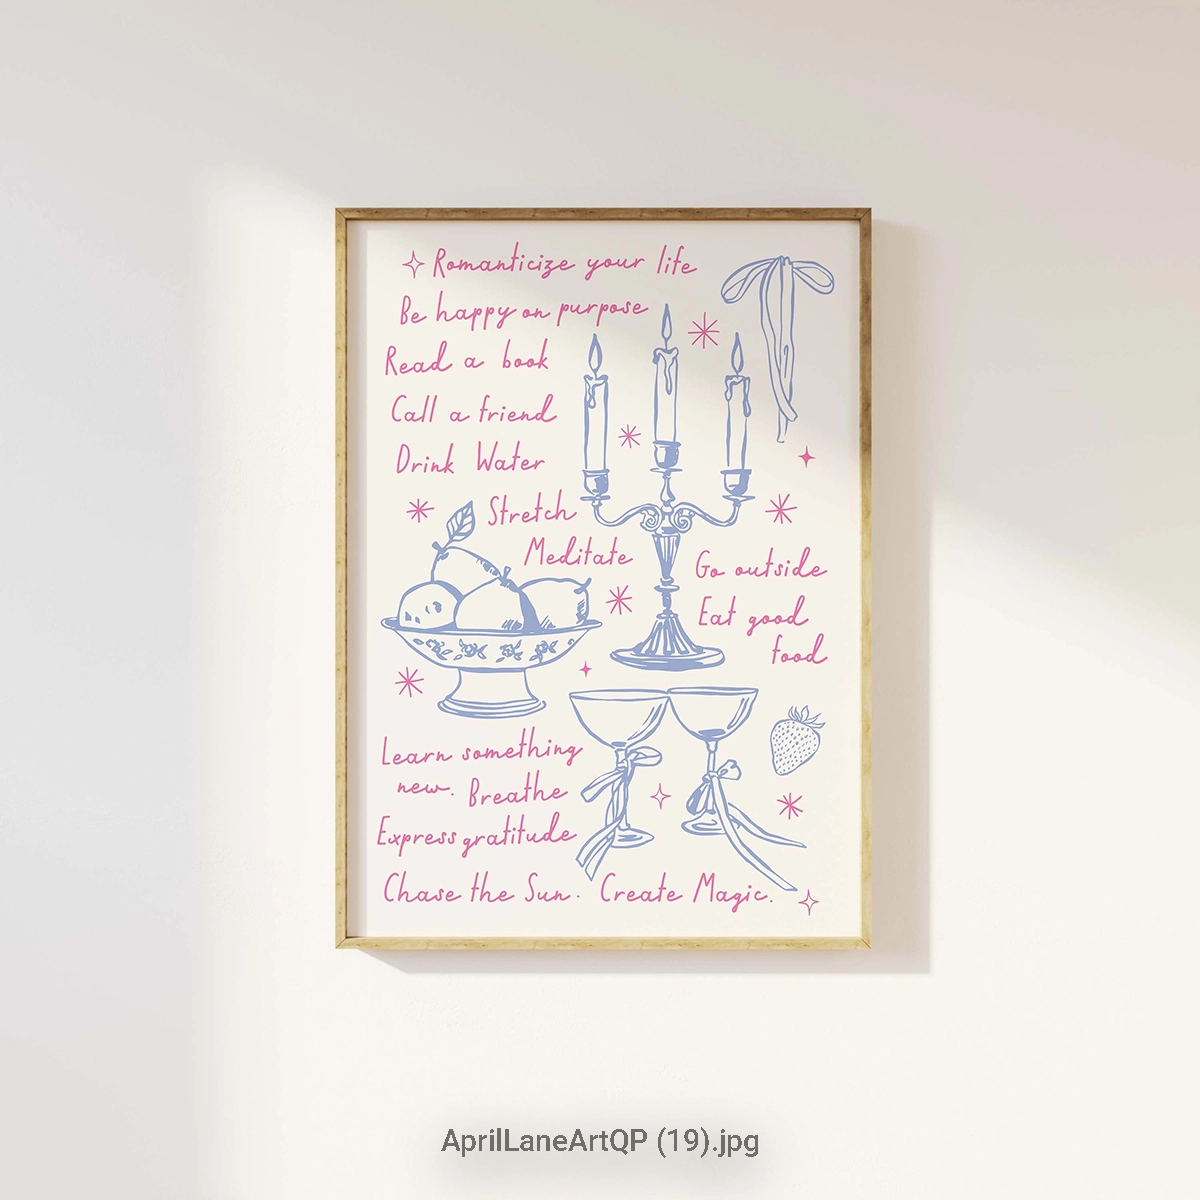 Romanticize your life
Be happy on purpose
Read a book
Call a friend
Drink Water
Stretch
Meditate
Go outside
Eat good
food
Learn something
new. Breathe
Express gratitude
Chase the Sun. Create Magic.
AprilLaneArtQP (19).jpg